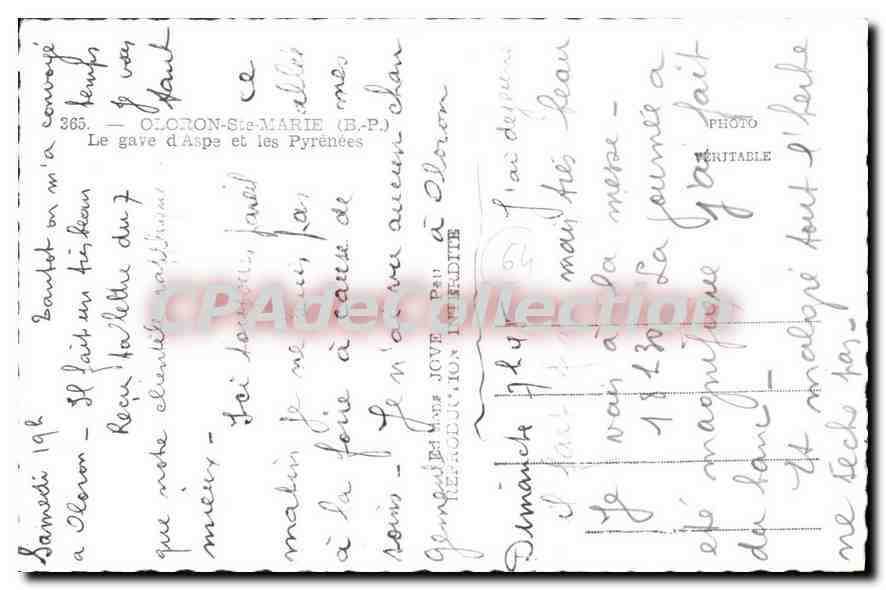 365. — OLORON-Ste-MARIE (B.-P.)
Le gave d'Aspe et les Pyrénées
PHOTO
VÉRITABLE
Editions JOVE Pau
REPRODUCTION INTERDITE
CPAdeCollection
Samedi 19h Tantot on m'a convoyé
a Oloron – Il fait un très beau temps
Reçu ta lettre du 7 Je vois
que notre clientèle tant
mieux –
Ici toujours pareil ce
matin je ne suis pas allée
à la foire à cause de mes
soins – Je n'ai vu aucun chan
gement à Oloron
Dimanche 7h45 J'ai dejeuné
il fait mais très beau
Je vais à la messe –
18h30 La journée a
été magnifique j'ai fait
du banc –
Et malgré tout l'herbe
ne sèche pas –